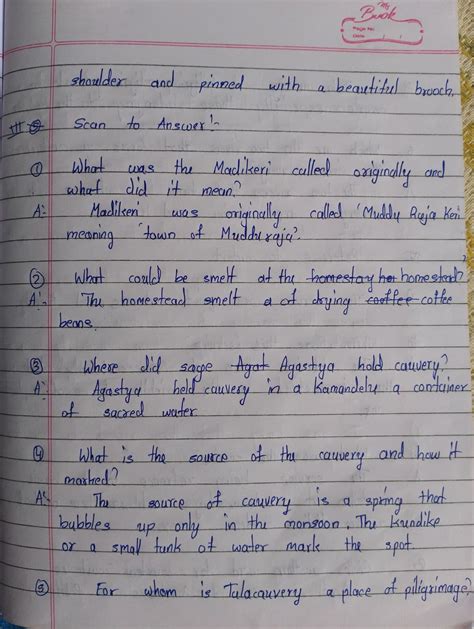 My
Book
Page No.
Date / /
shoulder and pinned with a beautiful brooch.
III Scan to Answer!-
① What was the Madikeri called originally and
what did it mean?
A:- Madikeri was originally called 'Muddu Raja Keri
meaning 'town of Mudduraja'.
② What could be smelt at the homestay her homestead?
A:- The homestead smelt a of drying coeffee coffee
beans.
③ Where did sage Agat Agastya hold cauvery?
A:- Agastya held cauvery in a Kamandelu a container
of sacred water
④ What is the source of the cauvery and how it
marked?
A:- The source of cauvery is a spring that
bubbles up only in the monsoon. The Kundike
or a small tank of water mark the spot.
⑤ For whom is Talacauvery a place of piligrimage?